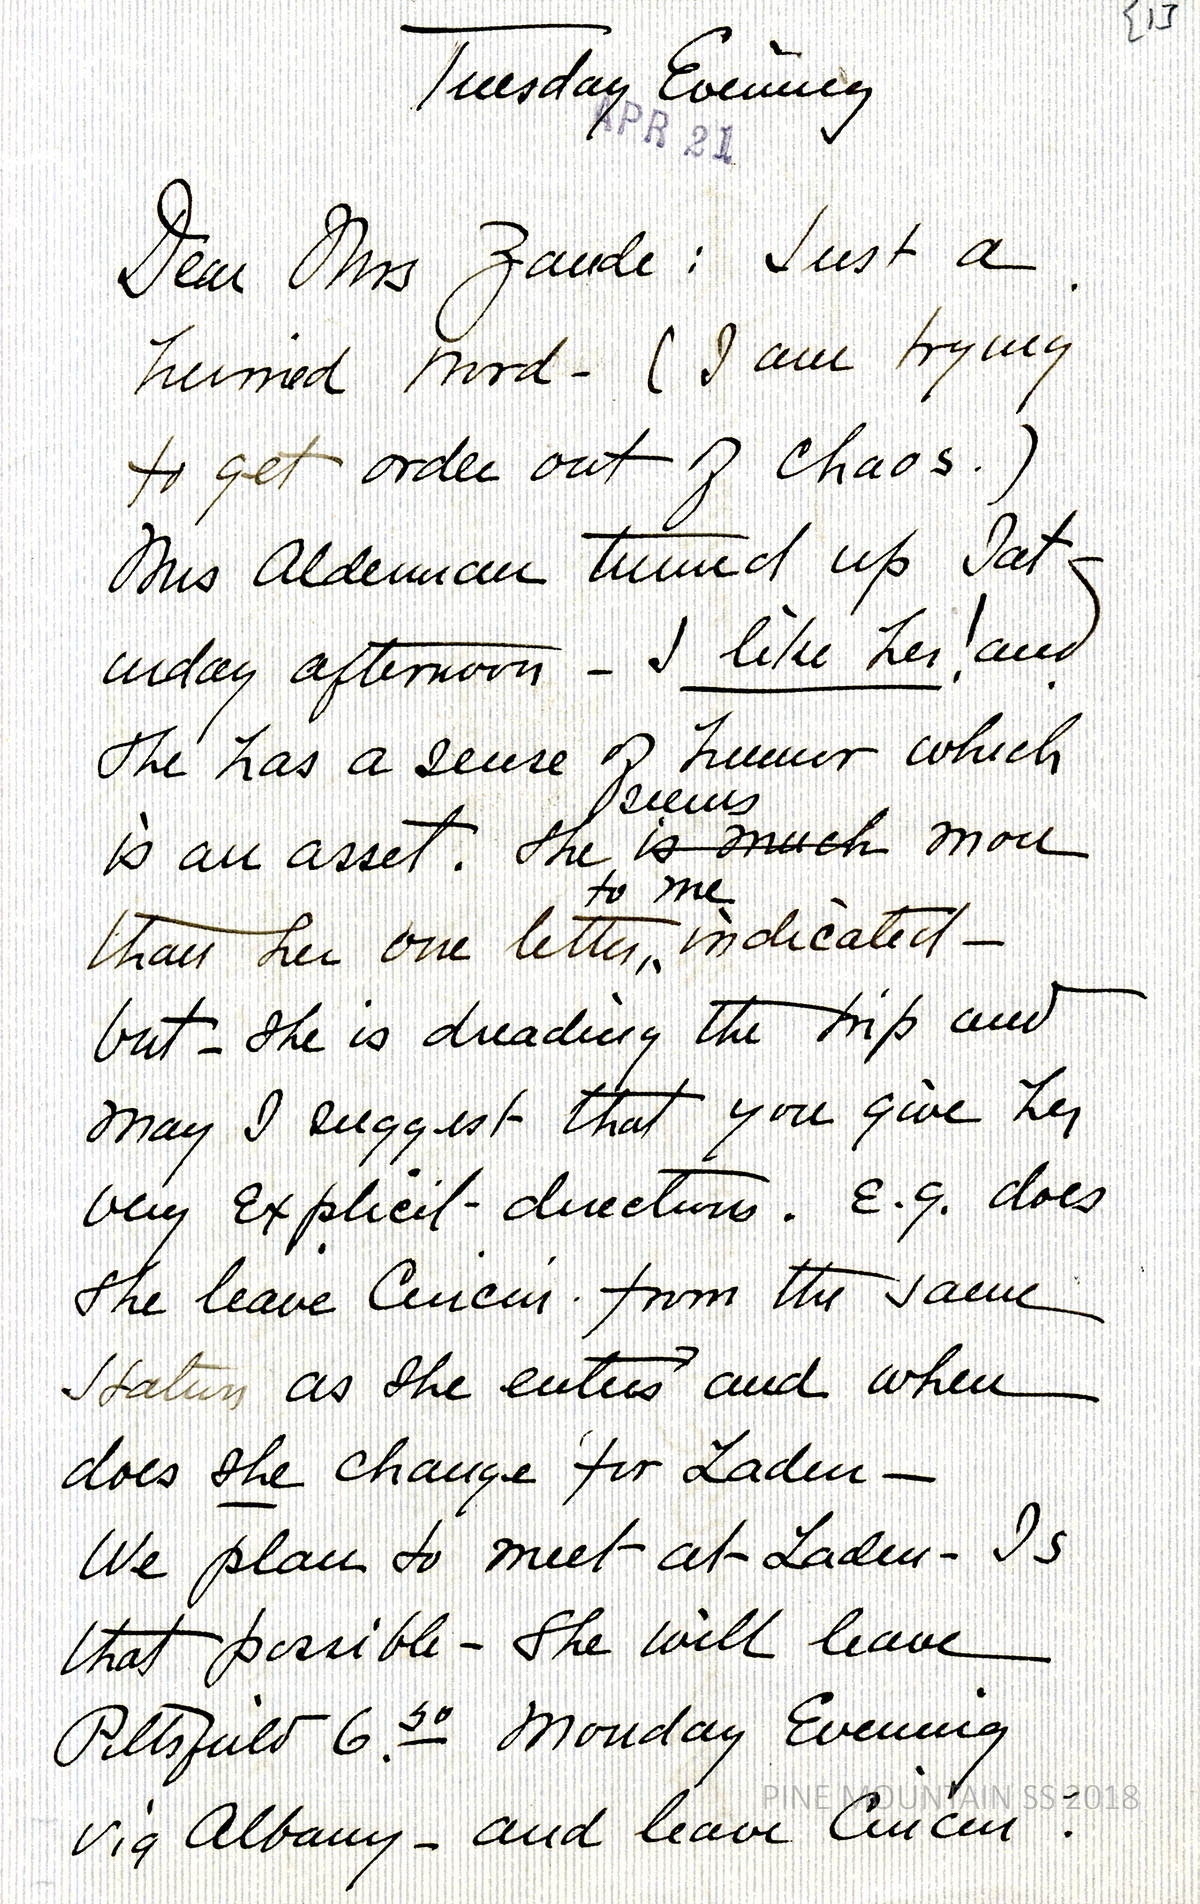 [1]
Tuesday Evening
APR 21
Dear Mrs Zande: Just a
hurried word - (I am trying
to get order out of chaos.)
Mrs Alderman turned up Sat-
urday afternoon - I like her! and
She has a sense of humor which
seems
is an asset. She is much more
to me
than her one letter, indicated -
but - she is dreading the trip and
may I suggest that you give her
very explicit directions. E.g. does
she leave Cincin. from the same
station as she enters and when
does she change for Laden -
We plan to meet at Laden - Is
that possible - She will leave
Pittsfield 6.50 Monday Evening
via Albany - and leave Cincin :
PINE MOUNTAIN SS 2018